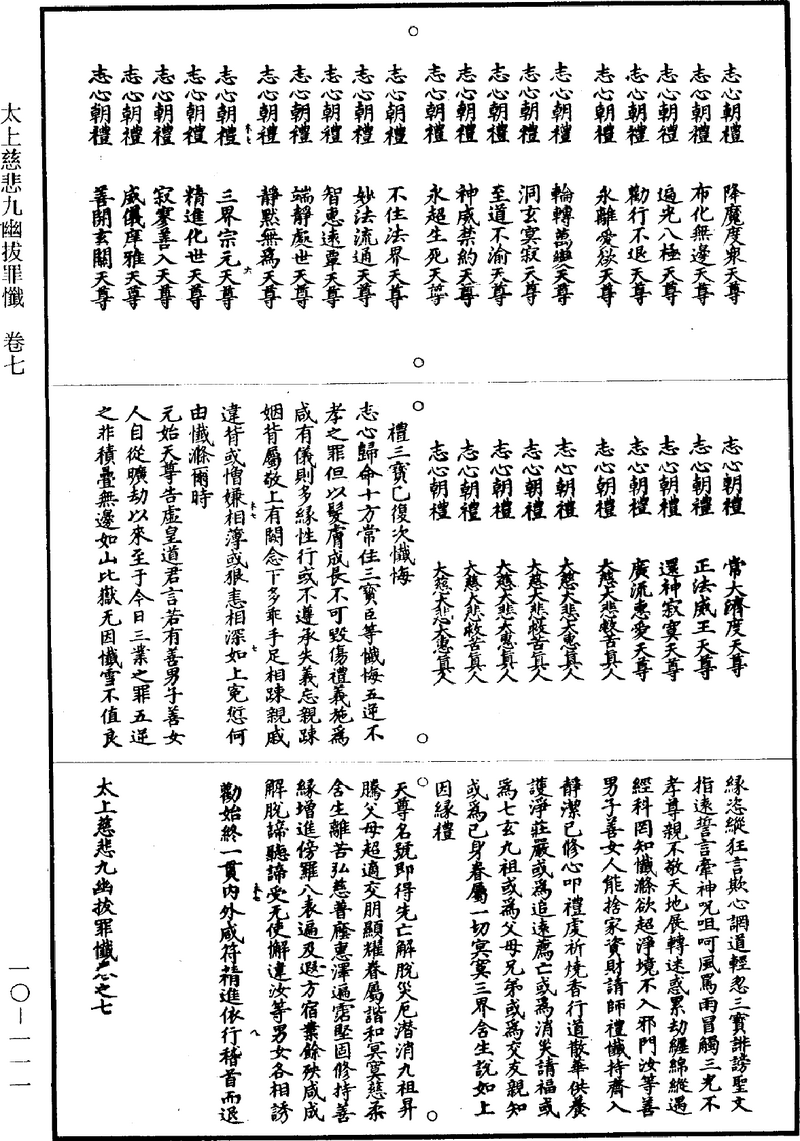 太上慈悲九幽拔罪懺　卷七
志心朝禮　降魔度衆天尊
志心朝禮　布化無邊天尊
志心朝禮　遍光八極天尊
志心朝禮　勸行不退天尊
志心朝禮　永離愛欲天尊
志心朝禮　輪轉萬變天尊
志心朝禮　洞玄冥寂天尊
志心朝禮　至道不渝天尊
志心朝禮　神威禁約天尊
志心朝禮　永超生死天尊
志心朝禮　不住法界天尊
志心朝禮　妙法流通天尊
志心朝禮　智惠遠覃天尊
志心朝禮　端靜處世天尊
志心朝禮　靜默無爲天尊
志心朝禮　三界宗元天尊
志心朝禮　精進化世天尊
志心朝禮　寂寥善入天尊
志心朝禮　威儀庠雅天尊
志心朝禮　善開玄關天尊
志心朝禮　常大濟度天尊
志心朝禮　正法威王天尊
志心朝禮　還神寂寞天尊
志心朝禮　廣流惠愛天尊
志心朝禮　大慈大悲救苦真人
志心朝禮　大慈大悲大惠真人
志心朝禮　大慈大悲救苦真人
志心朝禮　大慈大悲大惠真人
志心朝禮　大慈大悲救苦真人
志心朝禮　大慈大悲大惠真人
禮三寶已復次懺悔
志心歸命十方常住三寶臣等懺悔五逆不
孝之罪但以髮膚成長不可毀傷禮義施爲
咸有儀則多緣性行或不遵承失義忘親踈
姻背屬敬上有闕念下多乖手足相踈親戚
違背或憎嫌相薄或狠恚相深如上寃愆何
由懺滌爾時
元始天尊告虛皇道君言若有善男子善女
人自從曠劫以來至于今日三業之罪五逆
之非積疊無邊如山比嶽无因懺雪不值良
緣恣縱狂言欺心調道輕忽三寶誹謗聖文
指遠誓言牽神咒咀呵風罵雨冒觸三光不
孝尊親不敬天地展轉迷惑累劫纏綿縱遇
經科罔知懺滌欲超淨境不入邪門汝等善
男子善女人能捨家資財請師禮懺持齋入
靜潔已修心叩禮虔祈燒香行道散華供養
護淨莊嚴或爲追遠薦亡或爲消災請福或
爲七玄九祖或爲父母兄弟或爲交友親知
或爲己身眷屬一切冥寞三界含生說如上
因緣禮
天尊名號即得先亡解脫災厄潛消九祖昇
騰父母超適交朋顯耀眷屬諧和冥寞慈柔
含生離苦弘慈普廕惠澤遍霑堅固修持善
緣增進傍羅八表遍及遐方宿業餘殃咸成
解脫諦聽諦受无使懈違汝等男女各相誘
勸始終一貫內外咸符精進依行稽首而退
太上慈悲九幽拔罪懺卷之七
一〇－一一一